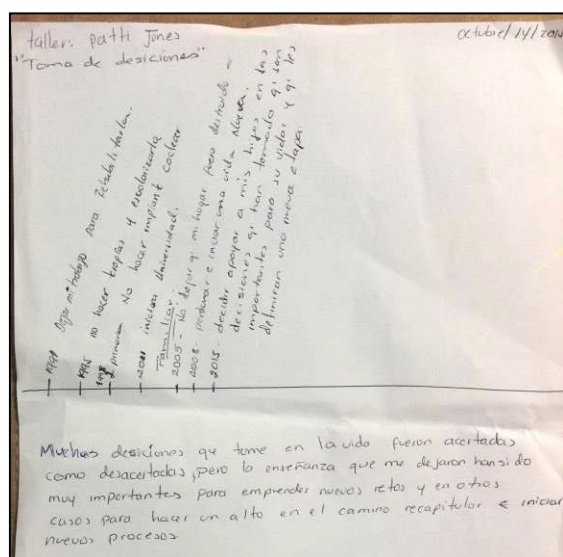 taller: path Jones
octubre/14/201
"Toma de desiciones"
1991 Dejar mi trabajo para Rehabilitarla.
1995 no hacer terapias y escolarizarla
2 primaria No hacer implante coclear
2001 iniciar Universidad.
Familiar
2005 - No dejar q' mi hogar fuera destruido =
2008 - perdonar e iniciar una vida Nueva.
2013 - decidir apoyar a mis hijos en las
decisiones q' han tomado q' son
importantes para su vida y q' les
definiran una nueva etapa.
Muchas desiciones que tome en la vida fueron acertadas
como desacertadas, pero la enseñanza que me dejaron han sido
muy importantes para emprender nuevos retos y en otros
casos para hacer un alto en el camino recapitular e iniciar
nuevos procesos